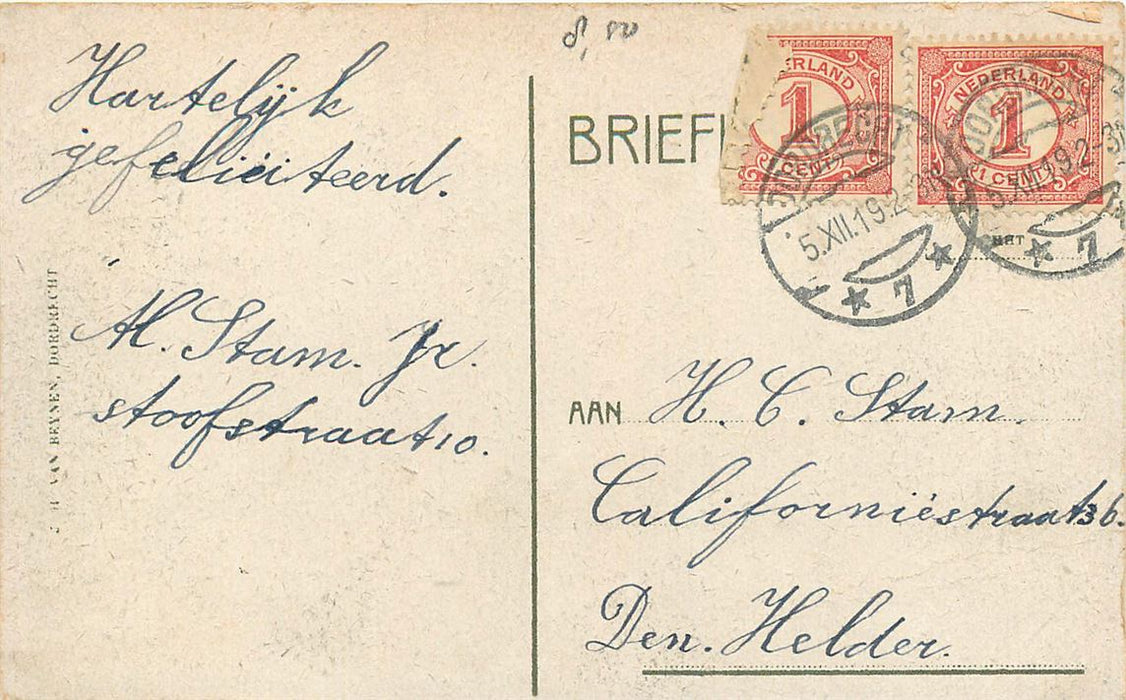 8,50
Hartelijk
gefeliciteerd.
H. Stam. Jr.
stoofstraat 10.
J. H. VAN BEYNEN, DORDRECHT
BRIEFK
ERLAND
1
CENT
NEDERLAND
1
1 CENT
DORDRECHT
5.XII.19.2-3N
7
DORDRECHT
5.XII.19.2-3N
7
AAN H. C. Stam.
Californiëstraat 36.
Den. Helder.